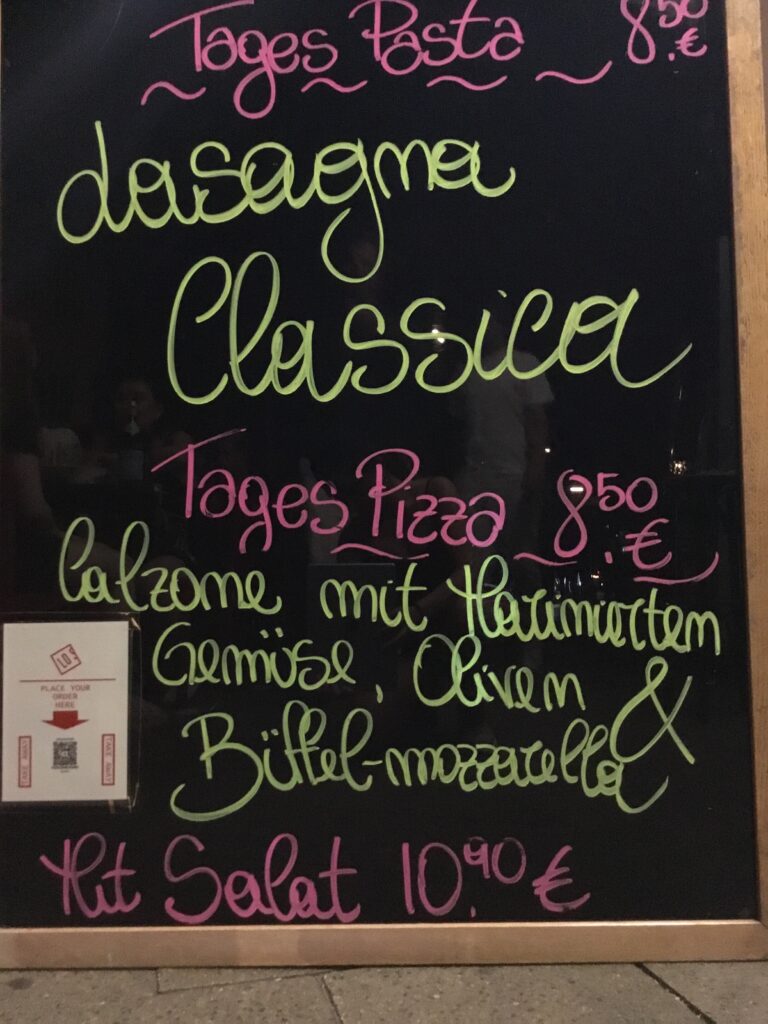 Tages Pasta 8.50 €
Lasagna
Classica
Tages Pizza 8.50 €
Calzone mit Marinierten
Gemüse, Oliven &
Büffel-mozzarella
Mit Salat 10,90 €
PLACE YOUR
ORDER
HERE
TAKE AWAY
TAKE AWAY